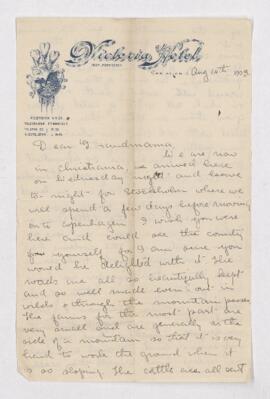 Victoria Hotel
Aug 14th 1903
Dear Grandmama,
We are now
in Christiania, we arrived here
on Wednesday night and leave
to-night for Stockholm where we
will spend a few days before moving
on to Copenhagen. I wish you were
here and could see the country
for yourself for I am sure you
would be delighted with it. The
roads are all so beautifully kept
and so well made even out in
wilds & through the mountain passes
The farms for the most part are
very small and are generally on the
side of a mountain so that it is very
hard to work the ground when it
is so sloping. The cattle are all sent